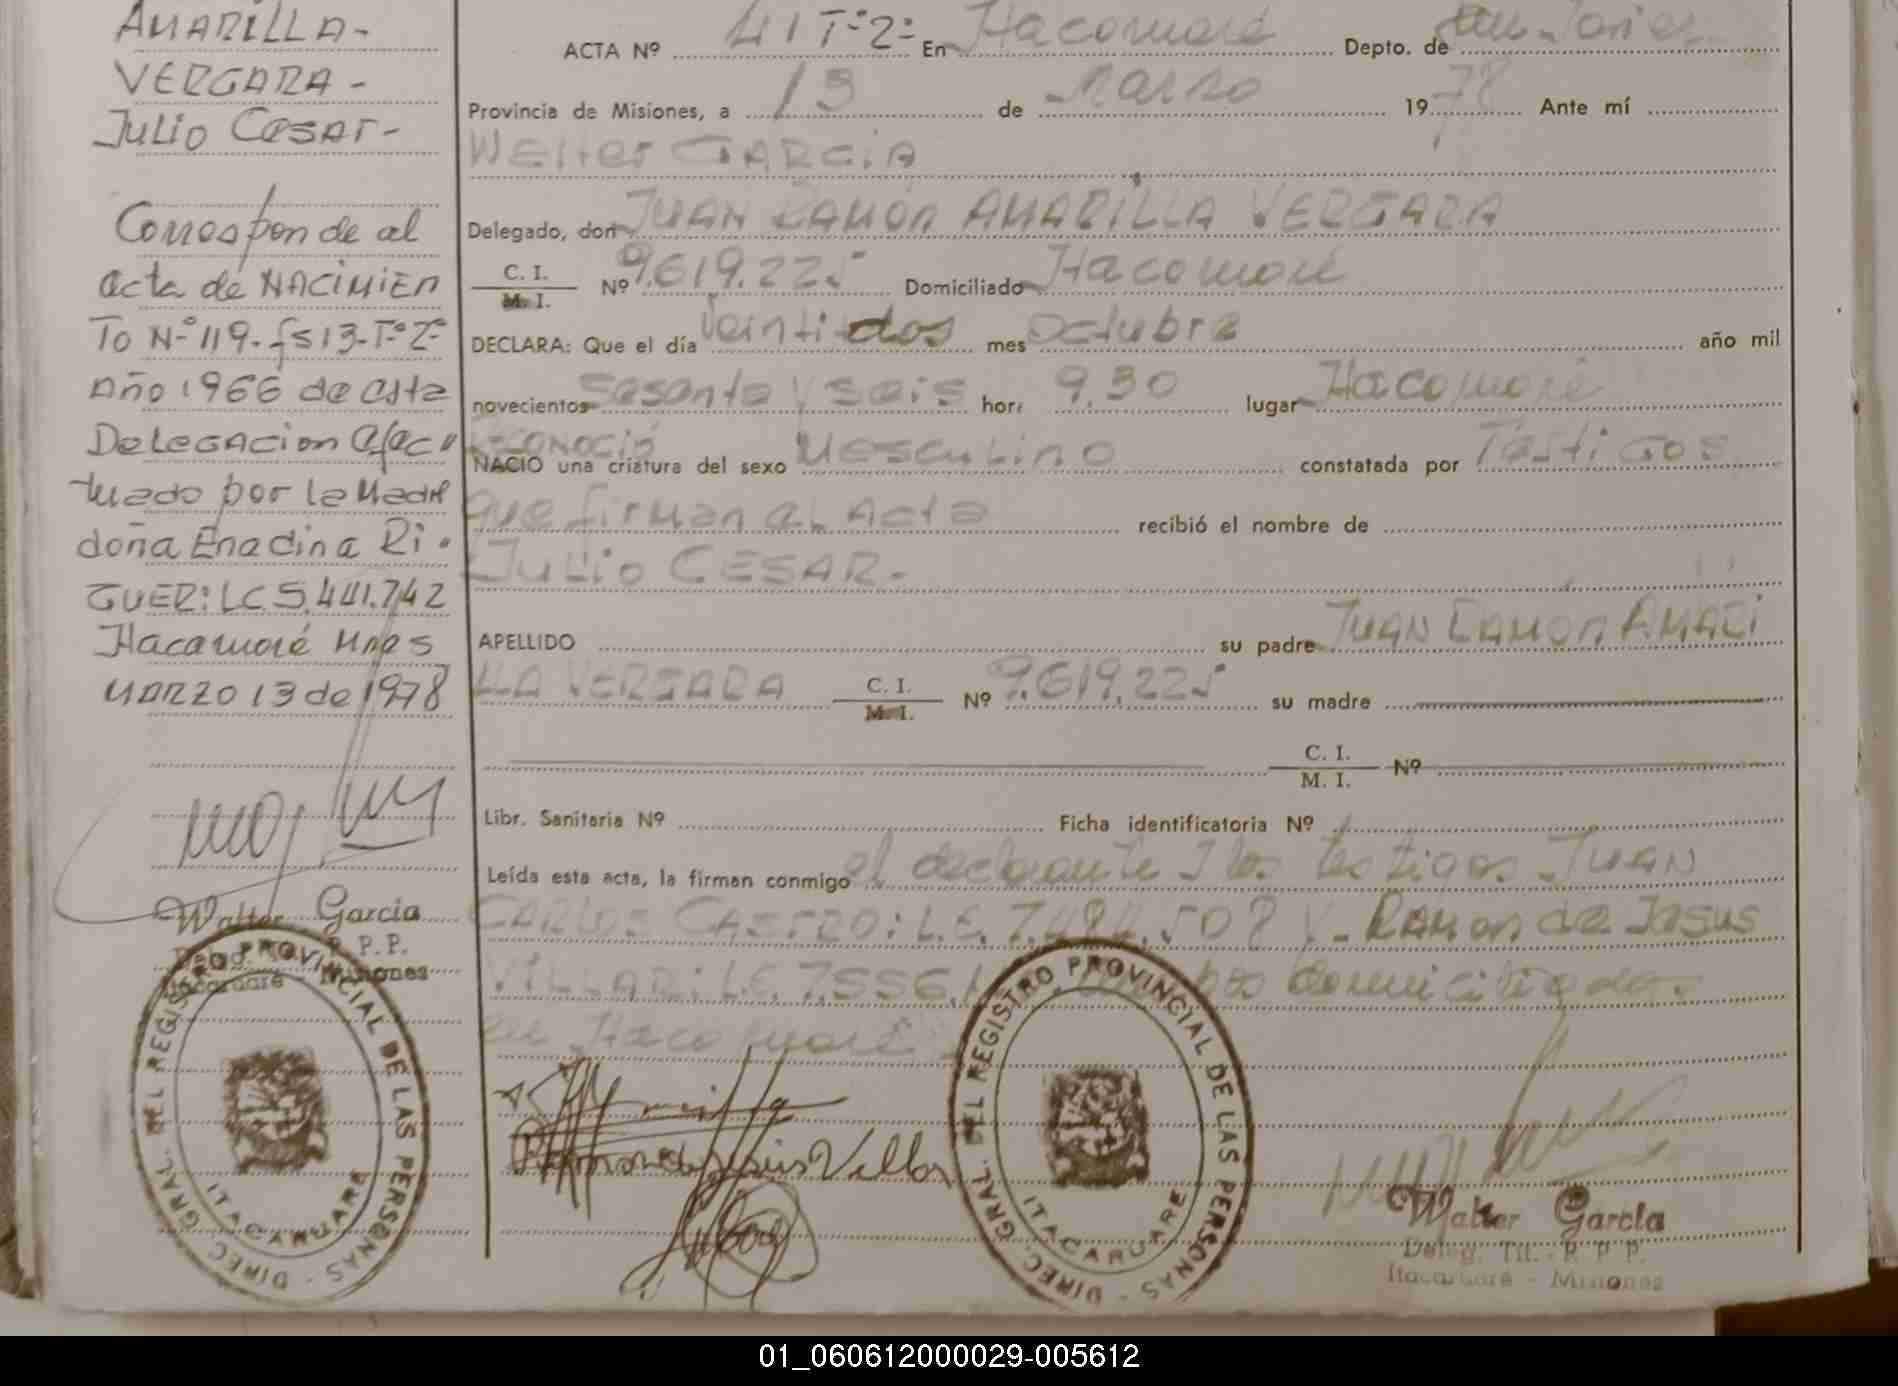 AMARILLA-
VERGARA-
Julio Cesar-
Corresponde al
acta de NACIMIEN
To Nº 119-fs 13-Tº2º
Año 1966 de esta
DELEGACion efec
tuado por la Madre
doña Enedina Ri
GUER: LC 5.441.742
Itacaruaré Mnes
MARZO 13 de 1978
Walter Garcia
R. P. P.
Itacaruaré - Misiones
DIREC. GRAL. DEL REGISTRO PROVINCIAL DE LAS PERSONAS
ITACARUARE
ACTA Nº 41 Tº2º En Itacaruaré Depto. de San Javier
Provincia de Misiones, a 13 de Marzo 1978 Ante mí
Walter GARCiA
Delegado, don JUAN RAMÓN AMARILLA VERGARA
C. I. / M. I. Nº 9.619.225 Domiciliado Itacaruaré
DECLARA: Que el día Veinti dos mes octubre año mil
novecientos sesenta y seis hora 9.30 lugar Itacaruaré
RECONOCIÓ
NACIO una criatura del sexo Masculino constatada por Testigos
que firman al Acta recibió el nombre de
Julio CESAR.-
APELLIDO su padre JUAN RAMON AMARI
LLA VERGARA C. I. / M. I. Nº 9.619.225 su madre
C. I. / M. I. Nº
Libr. Sanitaria Nº Ficha identificatoria Nº
Leída esta acta, la firman conmigo el declarante y los testigos JUAN
CARLOS CASTRO: L.E. 7.484.508 y- Ramon de Jesus
VILLAR: L.E. 7.556. domiciliados
en Itacaruaré
Ramon de Jesús Villar
DIREC. GRAL. DEL REGISTRO PROVINCIAL DE LAS PERSONAS
ITACARUARE
Walter Garcia
Deleg. Tit. - R. P. P.
Itacaruaré - Misiones
01_060612000029-005612